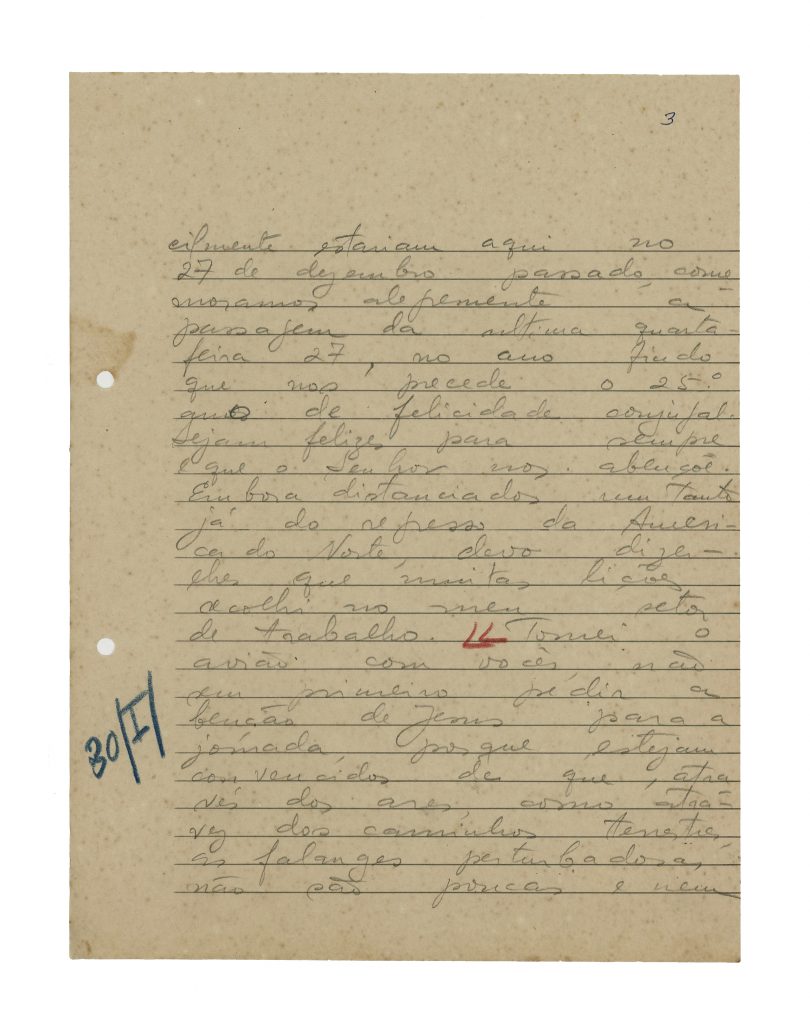 3
cilmente estariam aqui no
27 de dezembro passado, come
moramos alegremente a
passagem da ultima quarta-
feira 27, no ano findo
que nos precede o 25.º
de felicidade conjugal.
Sejam felizes para sempre
e que o Senhor nos abençõe.
Embora distanciados um tanto
já do regresso da Ameri-
ca do Norte, devo dizer-
lhes que muitas lições
recolhi no meu setor
de trabalho. Tomei o
avião com vocês, não
sem primeiro pedir a
benção de Jesus para a
jornada, porque estejam
convencidos de que, atra
vés dos ares, como atra-
vez dos caminhos terrestres,
as falanges perturbadoras,
não são poucas e nem
30/I/